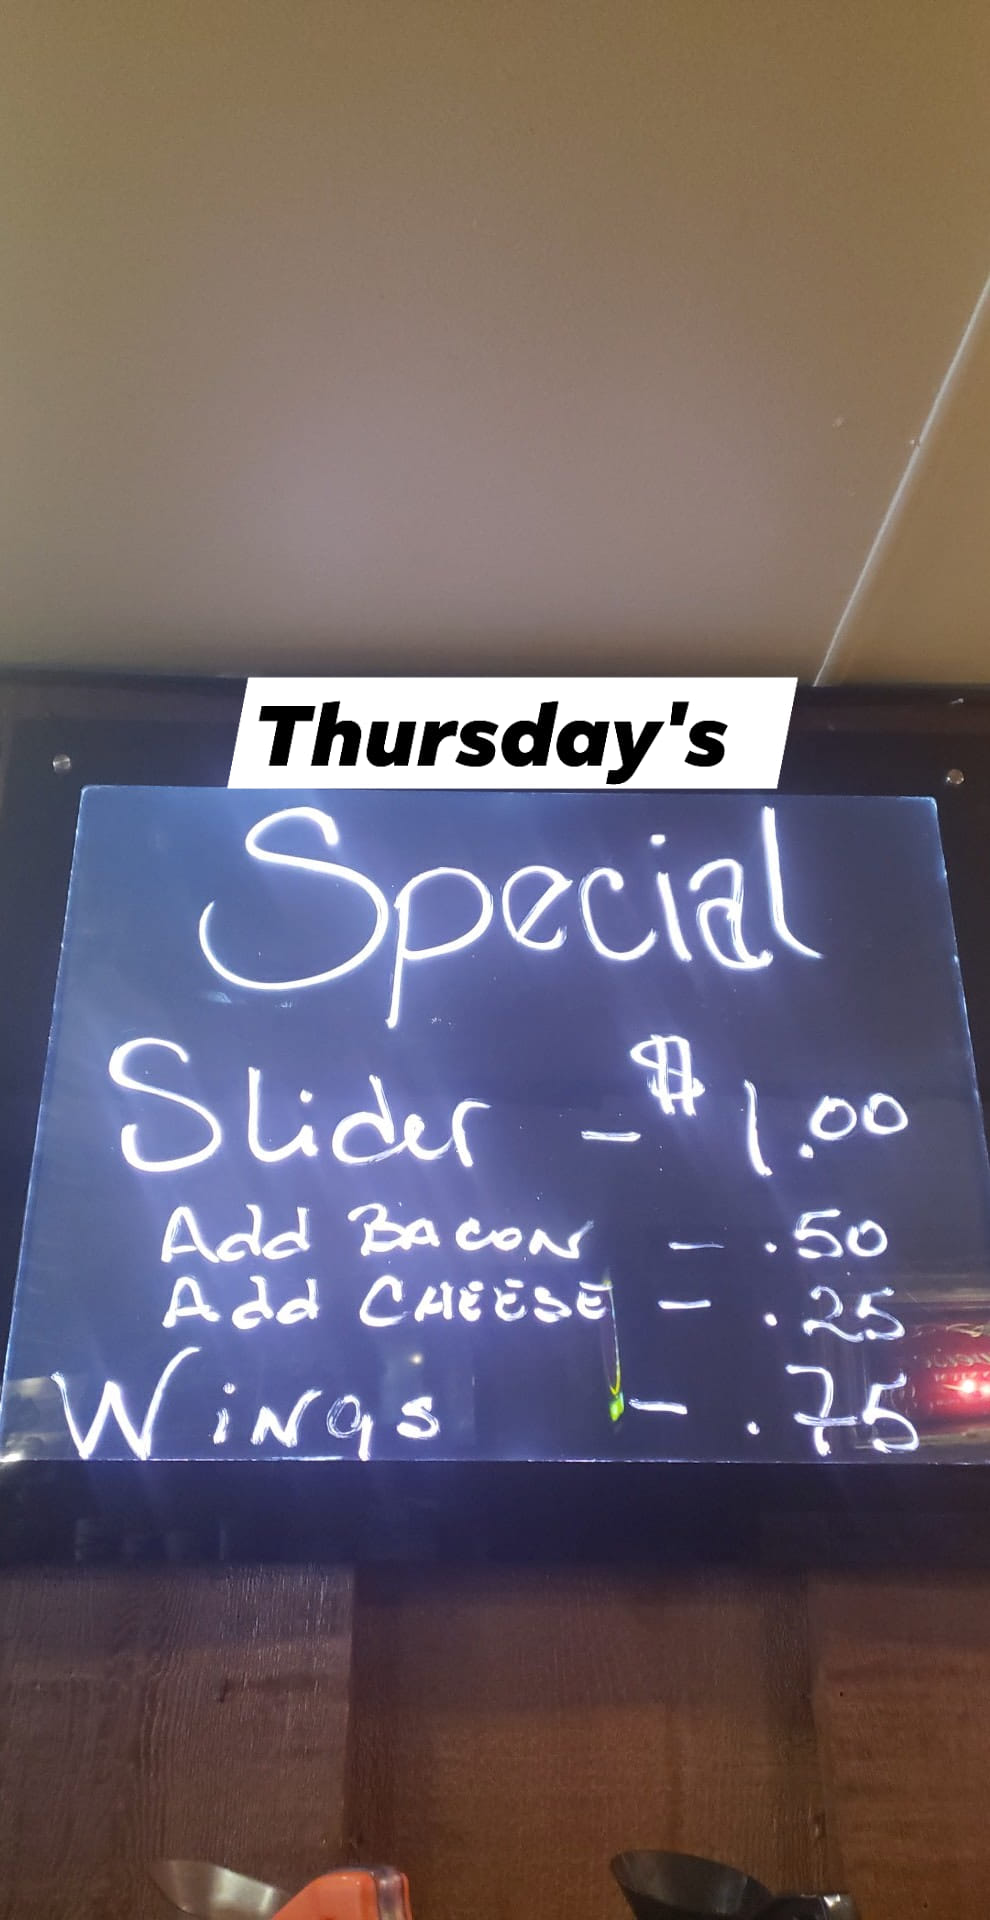 Thursday's
Special
Slider - $1.00
Add BACON - .50
Add CHEESE - .25
Wings - .75